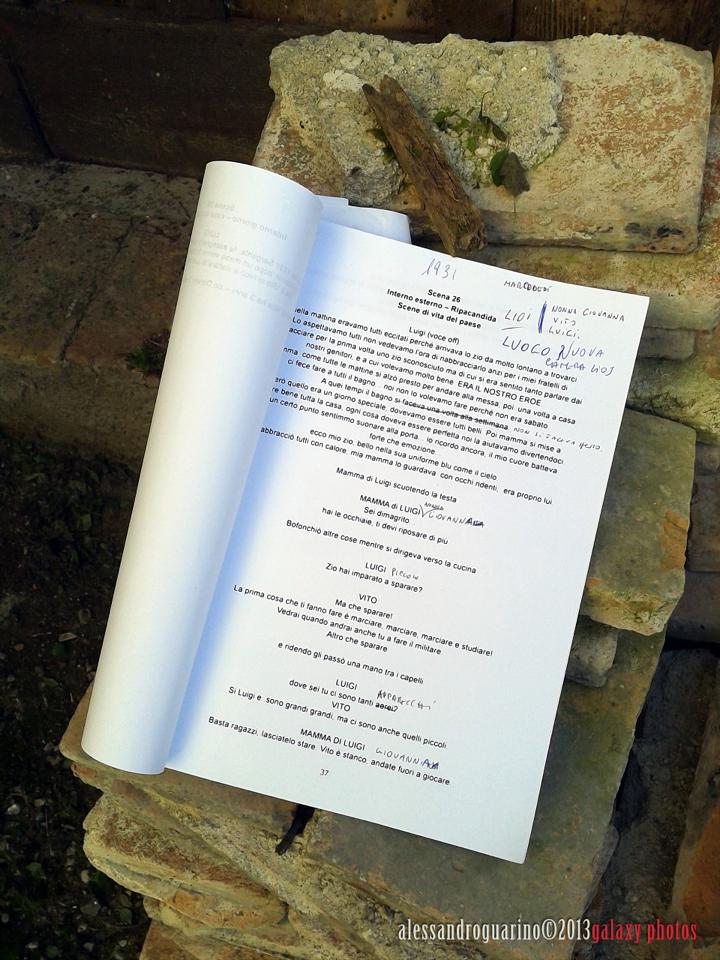 1931
MARTEDESI
Scena 26
Interno esterno – Ripacandida
Scene di vita del paese
LIOI
NONNA GIOVANNA
VITO
LUIGI
LUOGO NUOVA
CAMERA LIOI
Luigi (voce off)
uella mattina eravamo tutti eccitati perché arrivava lo zio da molto lontano a trovarci
Lo aspettavamo tutti non vedevamo l'ora di nabbracciarlo anzi per i miei fratelli di
acciare per la prima volta uno zio sconosciuto ma di cui si era sentito tanto parlare dai
nostri genitori, e a cui volevamo molto bene ERA IL NOSTRO EROE
mma come tutte le mattine si alzò presto per andare alla messa, poi una volta a casa
ci fece fare a tutti il bagno noi non lo volevamo fare perché non era sabato
A quei tempi il bagno si faceva una volta alla settimana NON SI FACEVA
erò quello era un giorno speciale, dovevamo essere tutti belli. Poi mamma si mise a
re bene tutta la casa, ogni cosa doveva essere perfetta noi la aiutavamo divertendoci
un certo punto sentimmo suonare alla porta... io ricordo ancora, il mio cuore batteva
forte che emozione...
ecco mio zio, bello nella sua uniforme blu come il cielo
abbracciò tutti con calore, mia mamma lo guardava con occhi ridenti, era proprio lui
Mamma di Luigi scuotendo la testa
MAMMA di LUIGI NONNA GIOVANNA
Sei dimagrito
hai le occhiaie, ti devi riposare di più
Bofonchiò altre cose mentre si dirigeva verso la cucina
LUIGI PICCOLO
Zio hai imparato a sparare?
VITO
Ma che sparare!
La prima cosa che ti fanno fare è marciare, marciare, marciare e studiare!
Vedrai quando andrai anche tu a fare il militare
Altro che sparare
e ridendo gli passò una mano tra i capelli
LUIGI
dove sei tu ci sono tanti aerei? APPARECCHI
VITO
Si Luigi e..sono grandi grandi, ma ci sono anche quelli piccoli
MAMMA DI LUIGI GIOVANNA
Basta ragazzi, lasciatelo stare. Vito è stanco, andate fuori a giocare.
37
alessandroguarino©2013galaxy photos